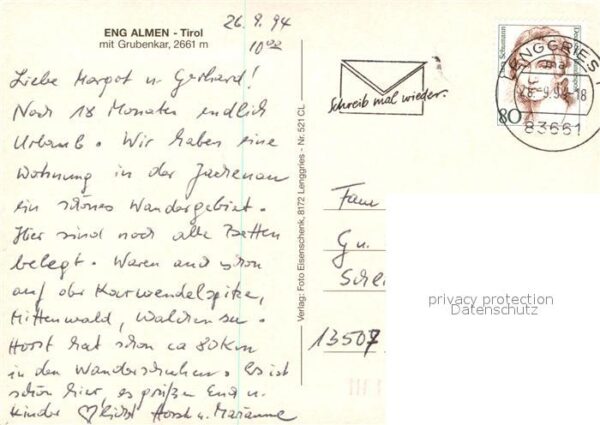 ENG ALMEN - Tirol
mit Grubenkar, 2661 m
26.9.94
10°°
Liebe Margot u. Gerhard!
Nach 18 Monaten endlich
Urlaub. Wir haben eine
Wohnung in der Jachenau
ein schönes Wandergebiet.
Hier sind noch alle Betten
belegt. Waren auch schon
auf der Karwendelspitze,
Mittenwald, Walchensee.
Horst hat schon ca 80 km
in den Wanderschuhen. Es ist
schön hier, es grüßen Euch u.
Kinder Horst u. Marianne
Verlag: Foto Eisenschenk, 8172 Lenggries - Nr. 521 CL
Schreib mal wieder.
Clara Schumann
Deutsche Bundespost
80
LENGGRIES 1
ma
-18
83661
Fam
Schl
13507
privacy protection
Datenschutz